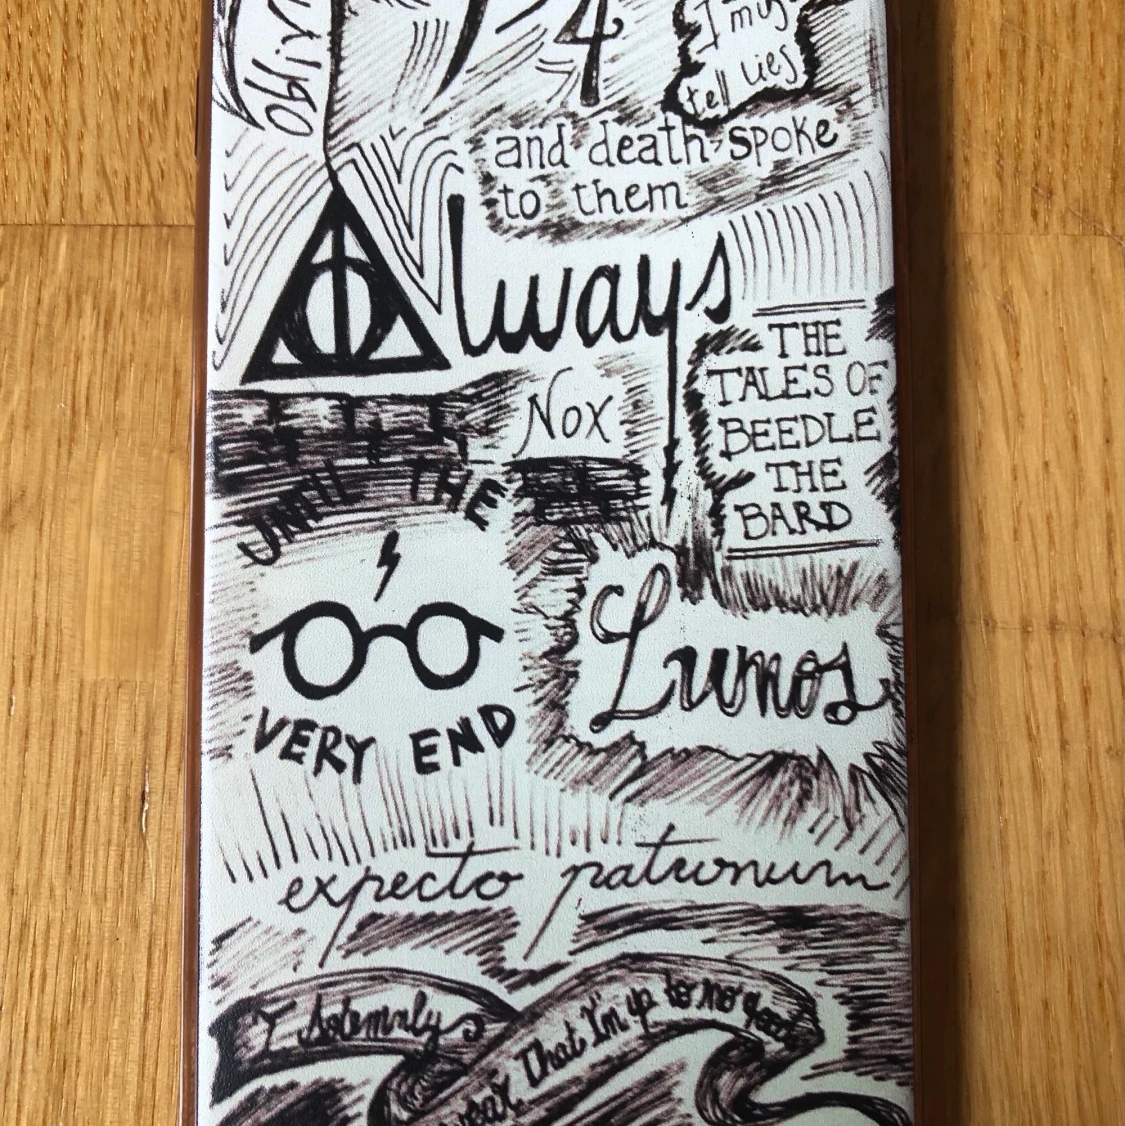 I must
tell lies
and death spoke
to them
Always
THE
TALES OF
BEEDLE
THE
BARD
Nox
UNTIL THE
VERY END
Lumos
expecto patronum
I Solemnly
That I'm up to no good